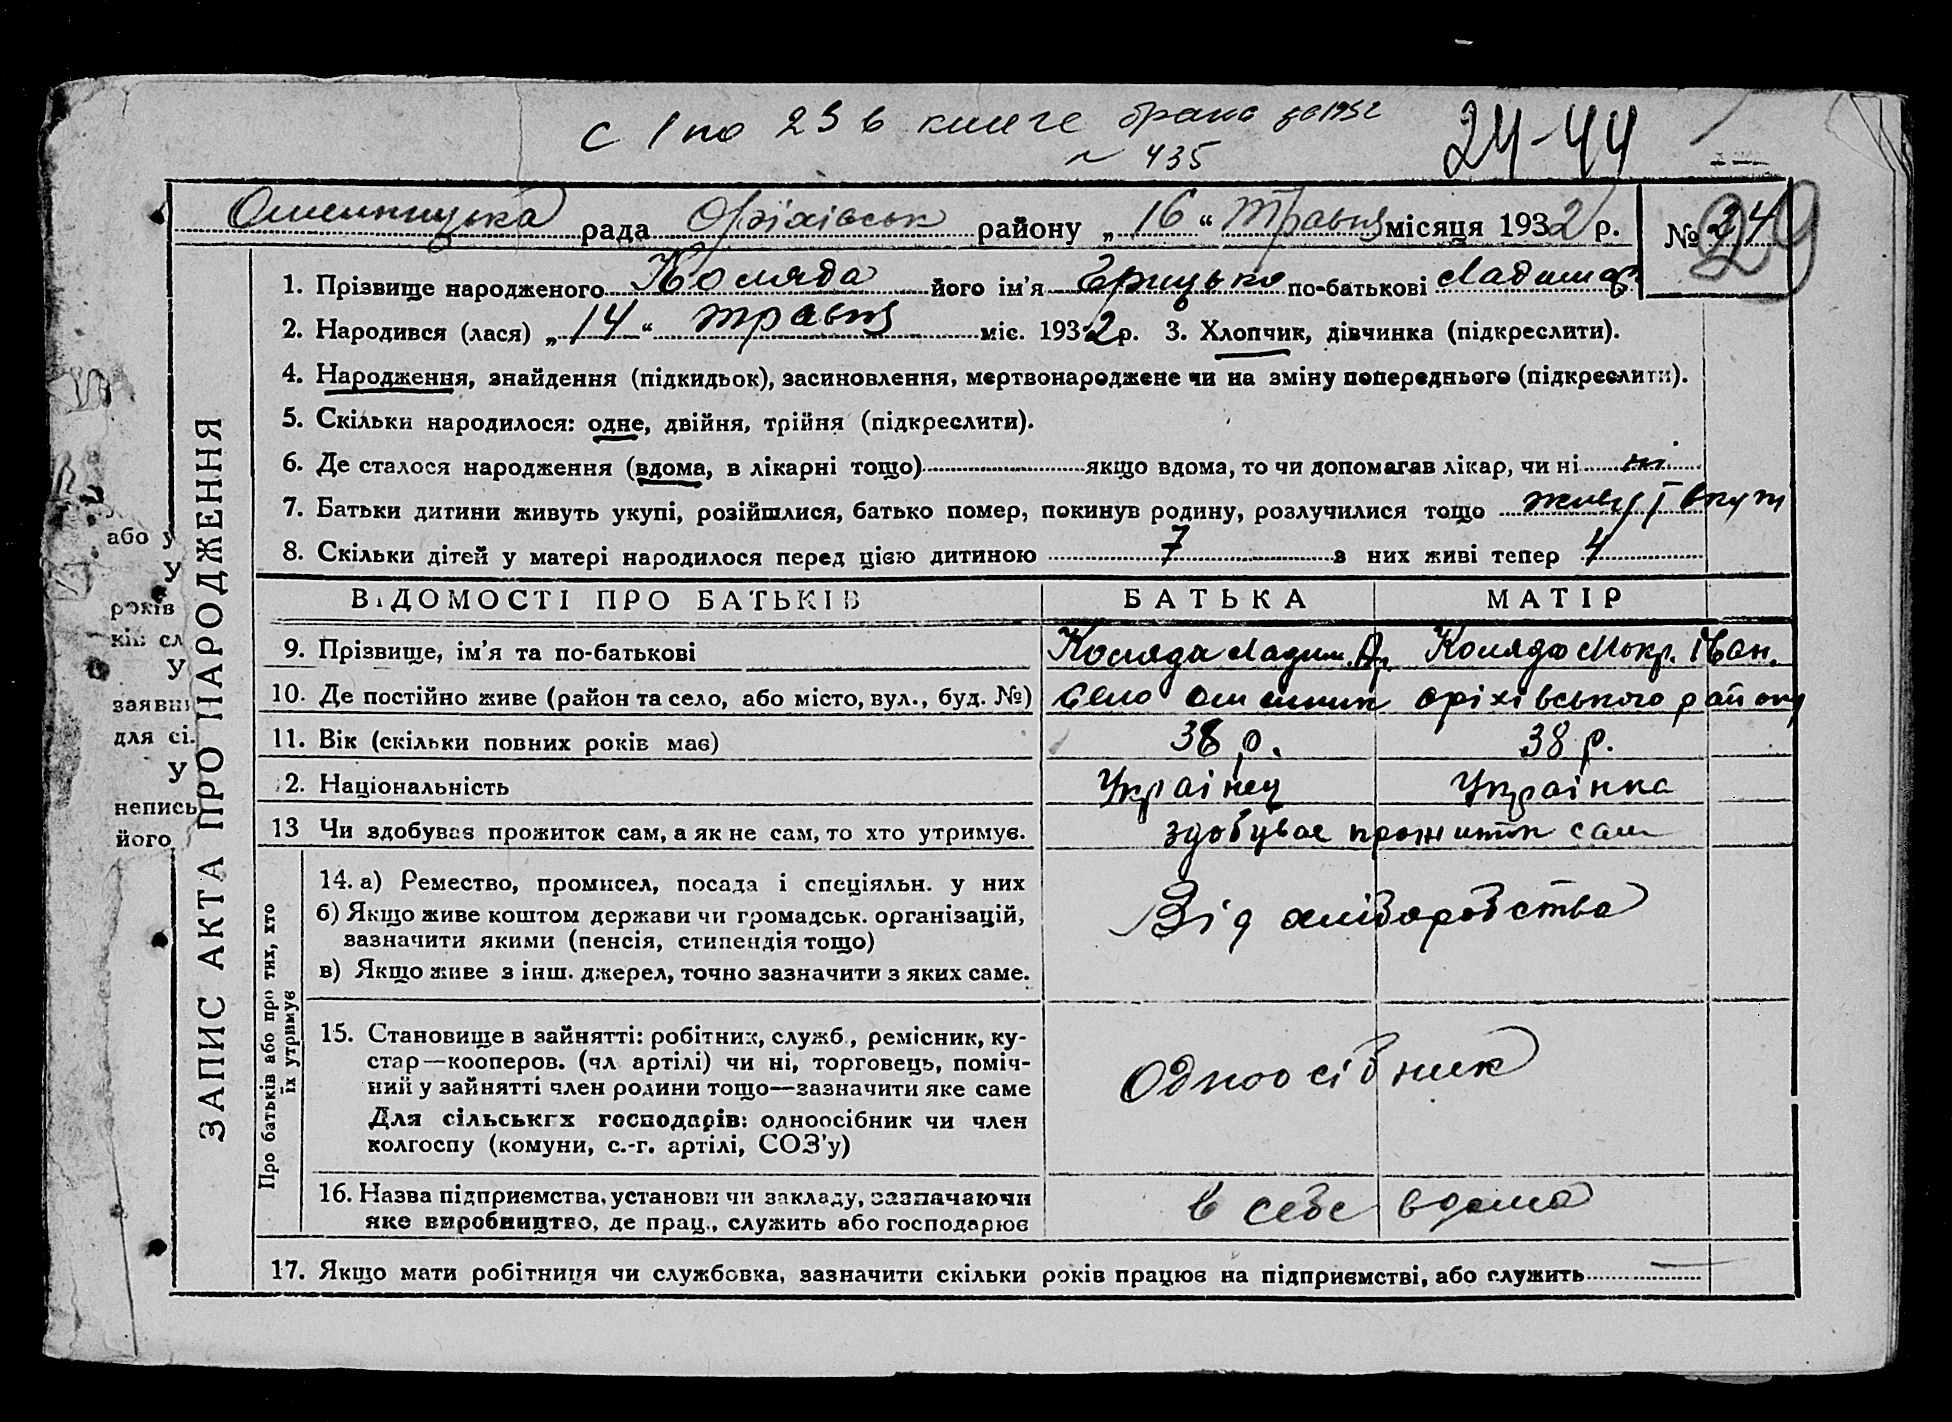 С 1 по 23 в книге брака за 1932
№ 435
24-44
рада Оріхівськ району „16“ травня місяця 1932 р. № 24
29
1. Прізвище народженого Коляда його ім'я Грицько по-батькові
2. Народився (лася) „14“ травня міс. 1932 р. 3. Хлопчик, дівчинка (підкреслити).
4. Народження, знайдення (підкидьок), засиновлення, мертвонароджене чи на зміну попереднього (підкреслити).
5. Скільки народилося: одне, двійня, трійня (підкреслити).
6. Де сталося народження (вдома, в лікарні тощо) якщо вдома, то чи допомагав лікар, чи ні ні
7. Батьки дитини живуть укупі, розійшлися, батько помер, покинув родину, розлучилися тощо живут вкупі
8. Скільки дітей у матері народилося перед цією дитиною 7 з них живі тепер 4
ЗАПИС АКТА ПРО НАРОДЖЕННЯ
або у
У
років
кін сл
У
заявни
для сі.
У
непись
його
ВІДОМОСТІ ПРО БАТЬКІВ БАТЬКА МАТІР
9. Прізвище, ім'я та по-батькові Коляда Коляда Мокр. Іван.
10. Де постійно живе (район та село, або місто, вул., буд. №) село оріхівського району
11. Вік (скільки повних років має) 38 р. 38 р.
12. Національність Украінец Украінка
13 Чи здобуває прожиток сам, а як не сам, то хто утримує. здобувае прожиток сам
Про батьків або про тих, хто
їх утримує
14. а) Ремество, промисел, посада і спеціяльн. у них
б) Якщо живе коштом держави чи громадськ. організацій,
зазначити якими (пенсія, стипендія тощо)
в) Якщо живе з інш. джерел, точно зазначити з яких саме.
Від хліборобства
15. Становище в зайнятті: робітник, служб., ремісник, ку-
стар—кооперов. (чл. артілі) чи ні, торговець, поміч-
ний у зайнятті член родини тощо—зазначити яке саме
Для сільських господарів: одноосібник чи член
колгоспу (комуни, с.-г. артілі, СОЗ'у)
Одноосібник
16. Назва підприємства, установи чи закладу, зазначаючи
яке виробництво, де прац., служить або господарює
в себе вдома
17. Якщо мати робітниця чи службовка, зазначити скільки років працює на підприємстві, або служить